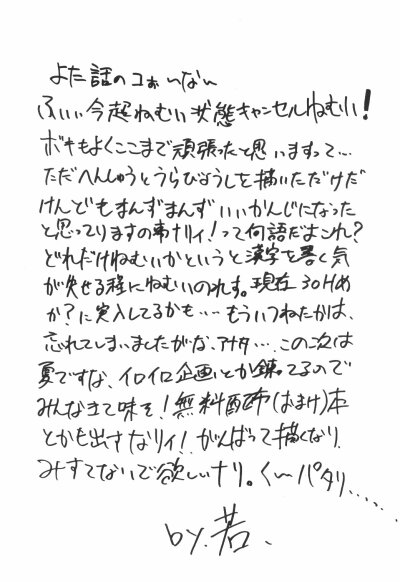 よた話のコぉーなー
ふぃぃ今超ねむい状態キャンセルねむい!
ボキもよくここまで頑張ったと思いますって…
ただへんしゅうとうらびょうしを描いただけだ
けんどもまんずまんずいいかんじになった
と思ってりますの事ナリィ!って何語だよこれ?
どれだけねむいかというと漢字を書く気
が失せる程にねむいのれす。現在30Hめ
か?に突入してるかも…もういつねたかは、
忘れてしまいましたがな、アナタ…この次は
夏ですな、イロイロ企画とか錬ってるので
みんなきて味そ!無料配布(おまけ)本
とかも出さなリィ!がんばって描くなり
みすてないで欲しいナリ。く〜パタリ.....
by.若、